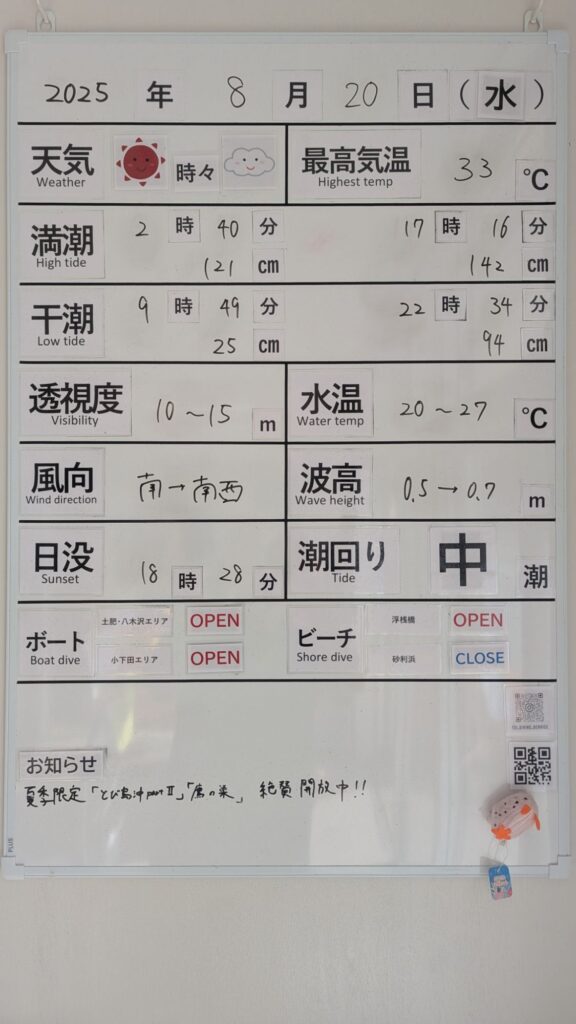 2025 年 8 月 20 日 (水)
天気 時々 最高気温 33 ℃
Weather Highest temp
満潮 2 時 40 分 17 時 16 分
High tide 121 cm 142 cm
干潮 9 時 49 分 22 時 34 分
Low tide 25 cm 94 cm
透視度 10～15 m 水温 20～27 ℃
Visibility Water temp
風向 南→南西 波高 0.5→0.7 m
Wind direction Wave height
日没 18 時 28 分 潮回り 中 潮
Sunset Tide
ボート 土肥・八木沢エリア OPEN ビーチ 浮桟橋 OPEN
Boat dive 小下田エリア OPEN Shore dive 砂利浜 CLOSE
お知らせ
夏季限定「とび島沖partⅡ」「鷹の巣」 絶賛開放中!!
PLUS